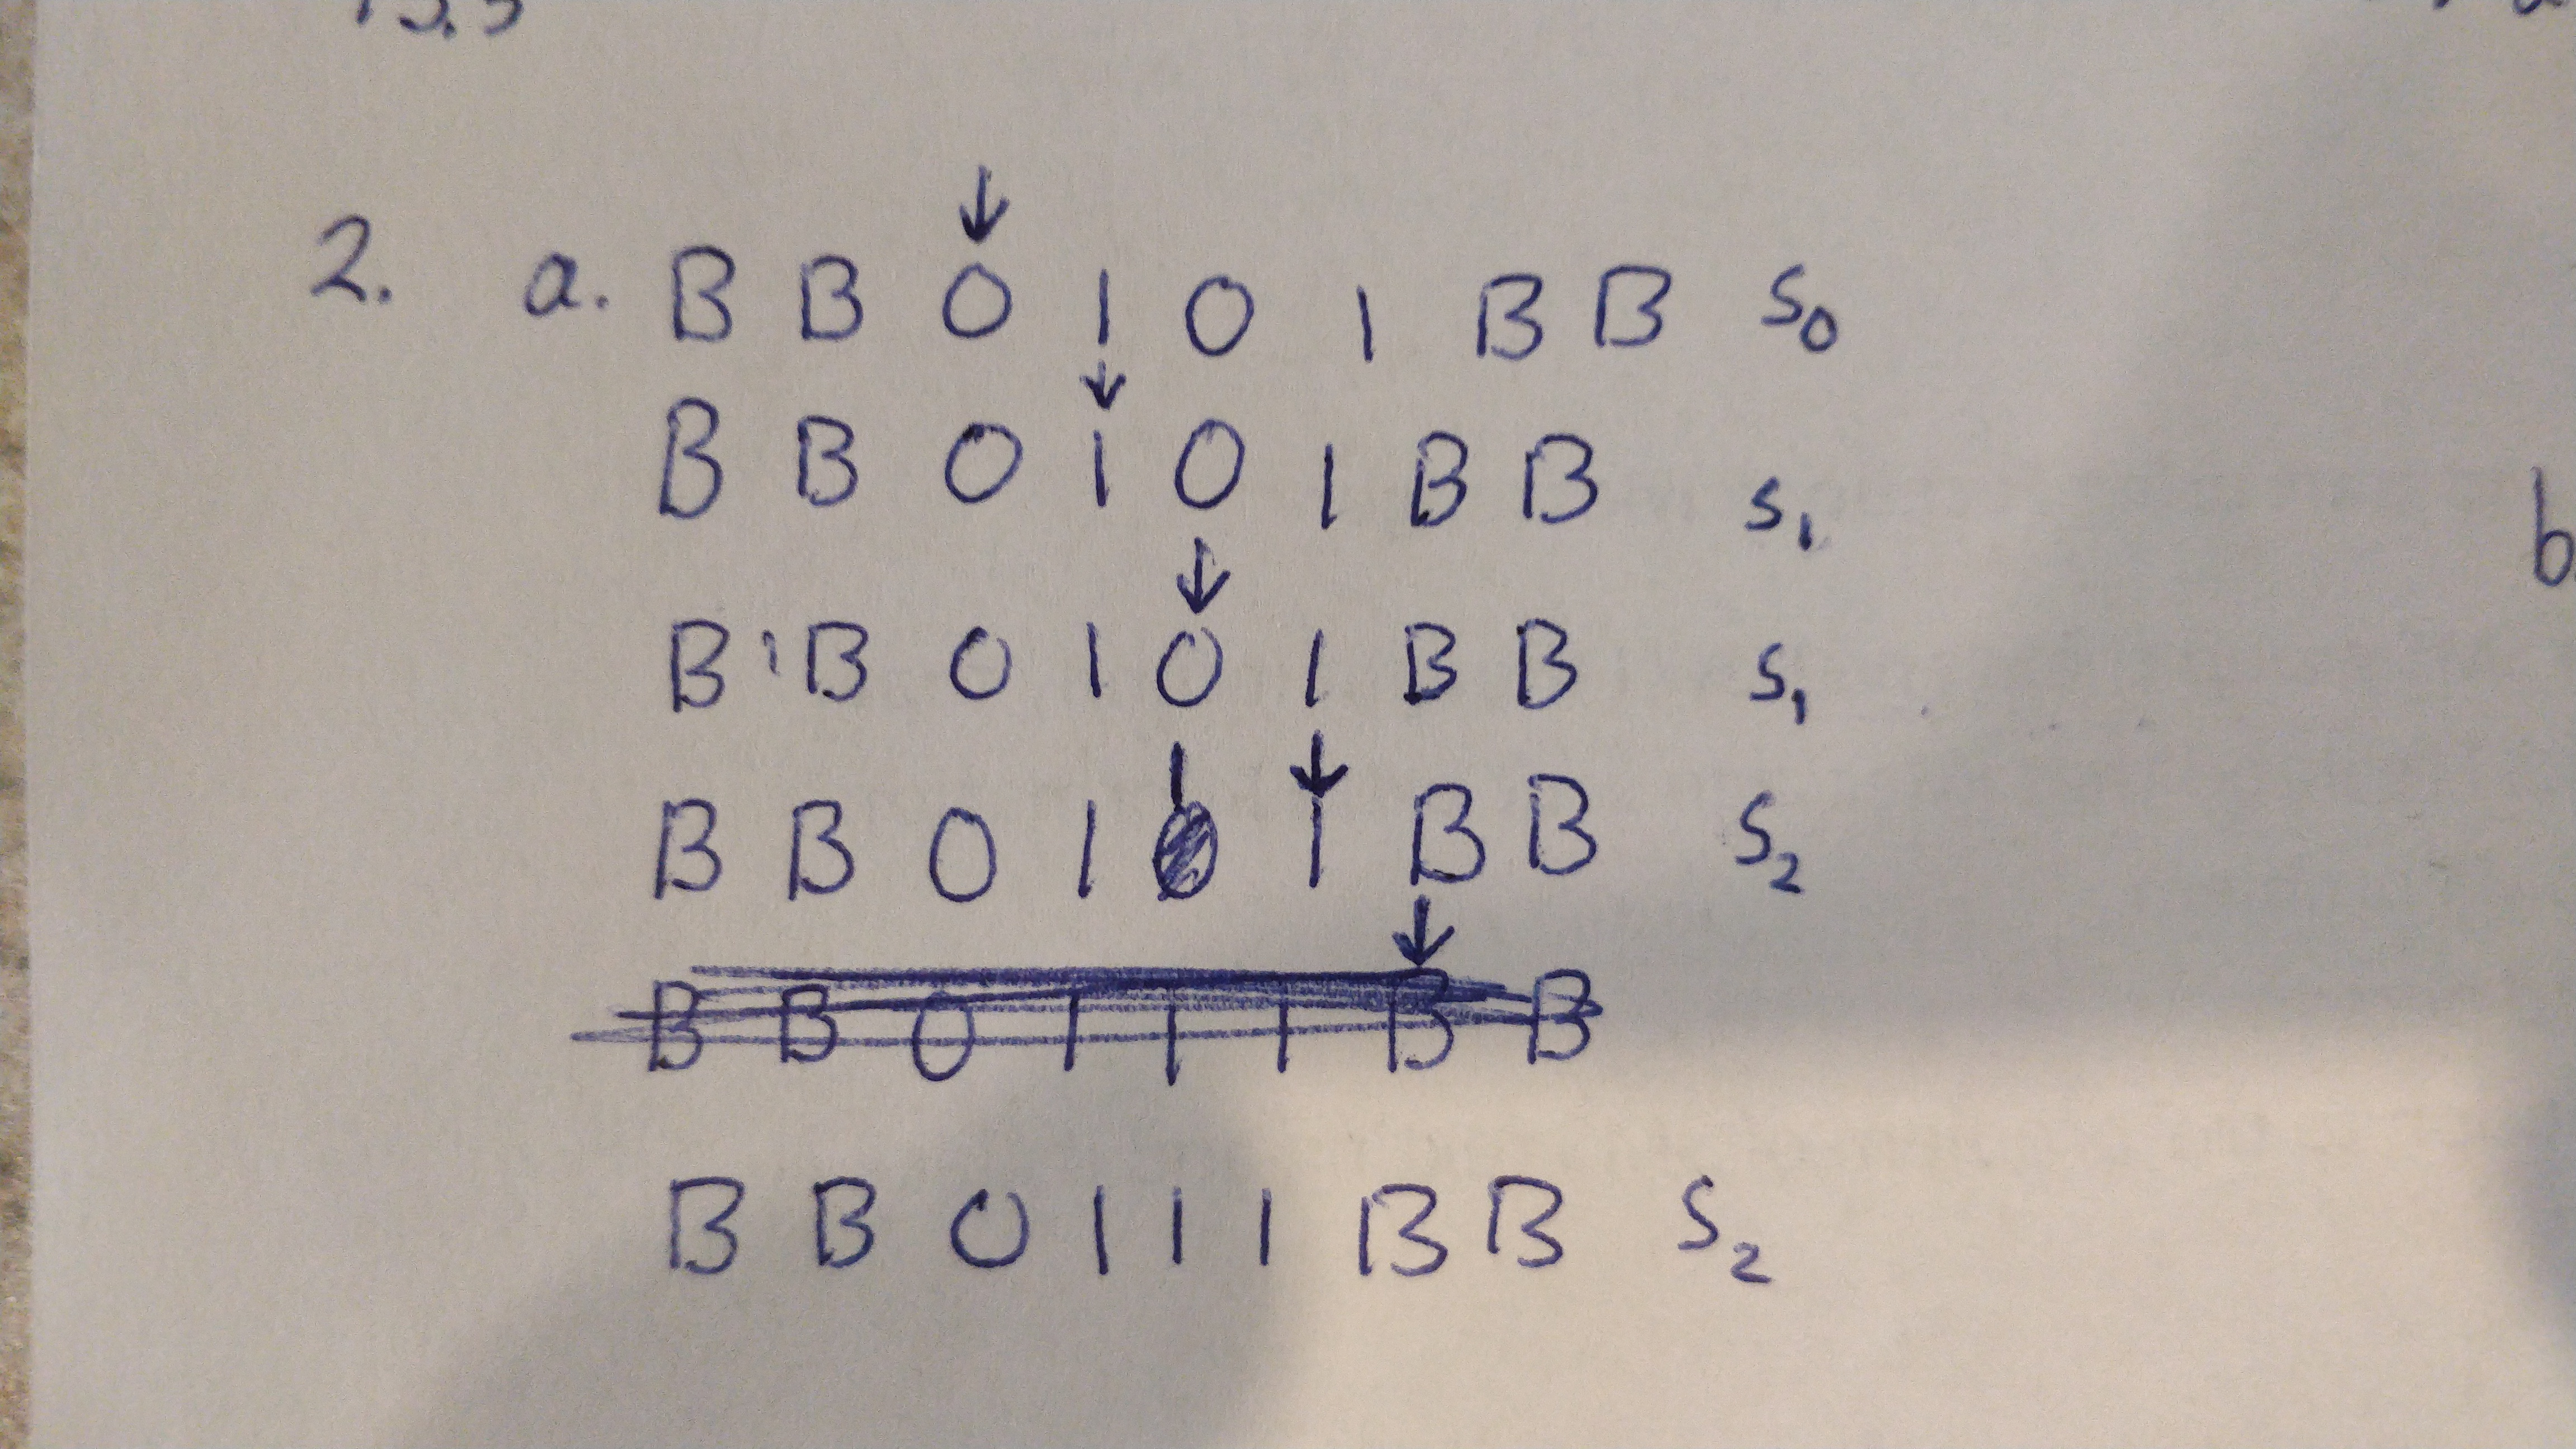 13.5
2. a. B B 0 1 0 1 B B S0
B B 0 1 0 1 B B S1
B B 0 1 0 1 B B S1
B B 0 1 1 1 B B S2
B B 0 1 1 1 B B
B B 0 1 1 1 B B S2
b